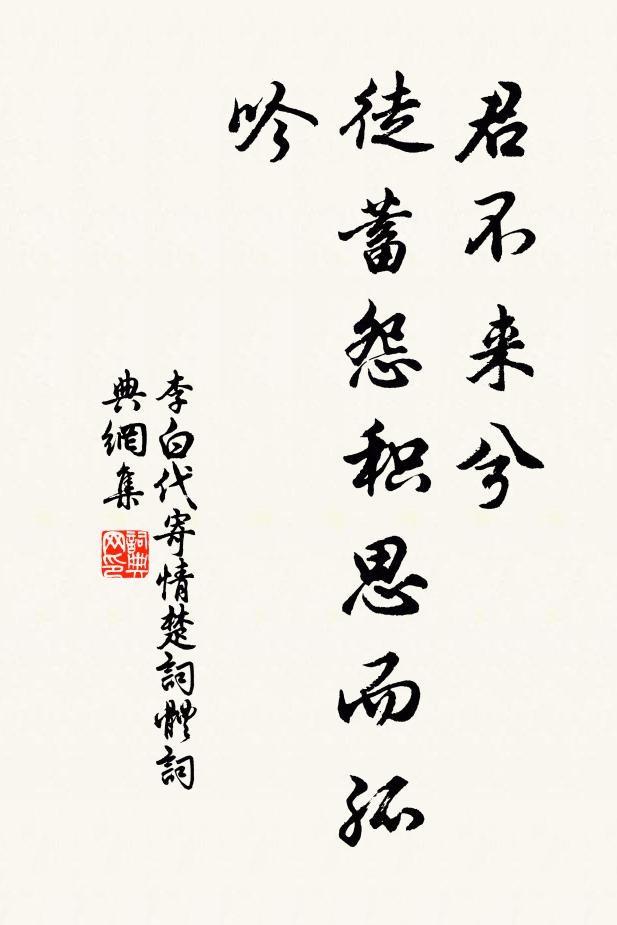 君不来兮
徒蓄怨积思而孤
吟
李白代寄情楚詞體詞
典網集
詞典网印